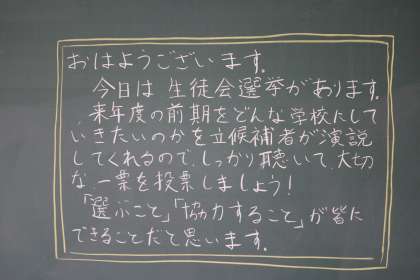 おはようございます。
今日は生徒会選挙があります。
来年度の前期をどんな学校にして
いきたいのかを立候補者が演説
してくれるので、しっかり聴いて、大切
な一票を投票しましょう!
「選ぶこと」「協力すること」が皆に
できることだと思います。